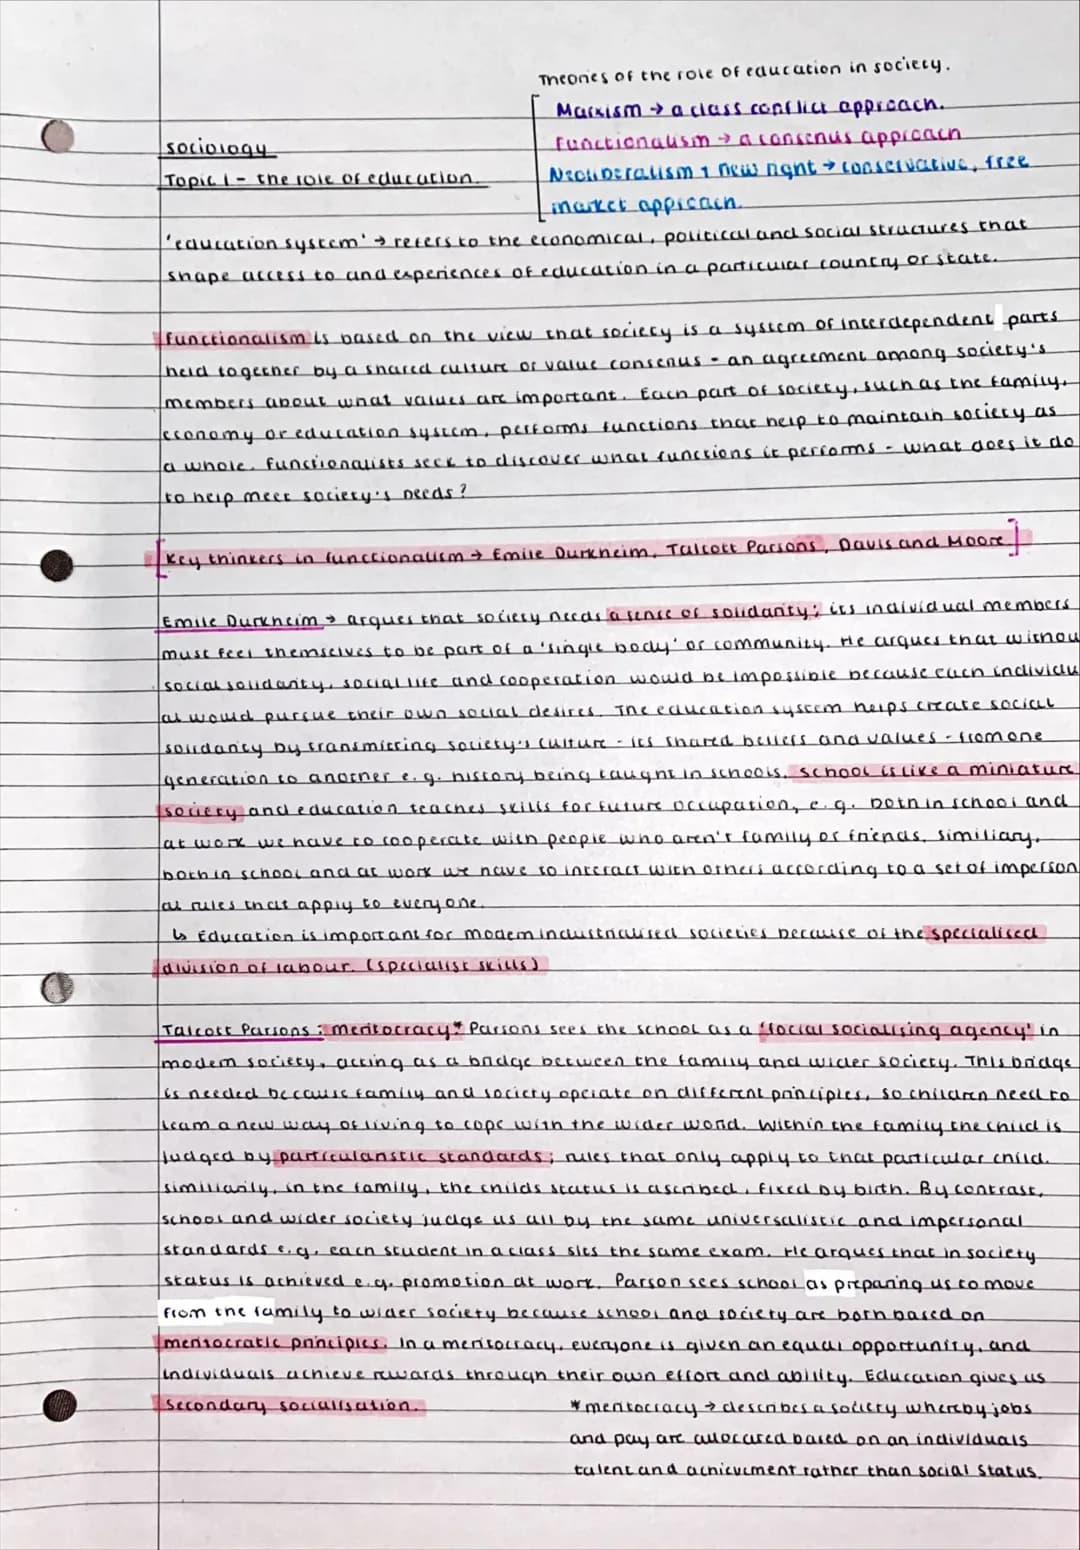 Theories of the role of education in society.
Marxism → a class conflict approach.
Functionalism → a consenus approach
Neoliberalism & new right → conservative, free
market approach.
sociology
Topic 1 - the role of education.
'education system' → refers to the economical, political and social structures that
shape access to and experiences of education in a particular country or state.
functionalism is based on the view that society is a system of interdependent parts
held together by a shared culture or value consenus - an agreement among society's
members about what values are important. Each part of society, such as the family,
economy or education system, performs functions that help to maintain society as
a whole. Functionalists seek to discover what functions it performs - what does it do
to help meet society's needs?
[Key thinkers in functionalism → Emile Durkheim, Talcott Parsons, Davis and Moore]
Emile Durkheim → argues that society needs a sense of solidarity; its individual members
must feel themselves to be part of a 'single body' or community. He argues that withou
social solidarity, social life and cooperation would be impossible because each individu
al would pursue their own social desires. The education system helps create social
solidarity by transmitting society's culture - its shared beliefs and values - from one
generation to another e.g. history being taught in schools. School is like a miniature
society and education teaches skills for future occupation, e.g. both in school and
at work we have to cooperate with people who aren't family or friends. similiarly,
both in school and at work we have to interact with others according to a set of imperson
al rules that apply to everyone.
↳ Education is important for modern industrialised societies because of the specialised
division of labour. (specialist skills)
Talcott Parsons : meritocracy* Parsons sees the school as a 'focal socialising agency' in
modern society, acting as a bridge between the family and wider society. This bridge
is needed because family and society operate on different principles, so children need to
learn a new way of living to cope with the wider world. Within the family the child is
judged by particularistic standards; rules that only apply to that particular child.
similiarily, in the family, the childs status is ascribed, fixed by birth. By contrast,
school and wider society judge us all by the same universalistic and impersonal
standards e.g. each student in a class sits the same exam. He argues that in society
status is achieved e.g. promotion at work. Parson sees school as preparing us to move
from the family to wider society because school and society are both based on
meritocratic principles. In a meritocracy, everyone is given an equal opportunity, and
individuals achieve rewards through their own effort and ability. Education gives us
secondary socialisation.
*meritocracy → describes a society whereby jobs
and pay are allocated based on an individuals
talent and achievement rather than social status.